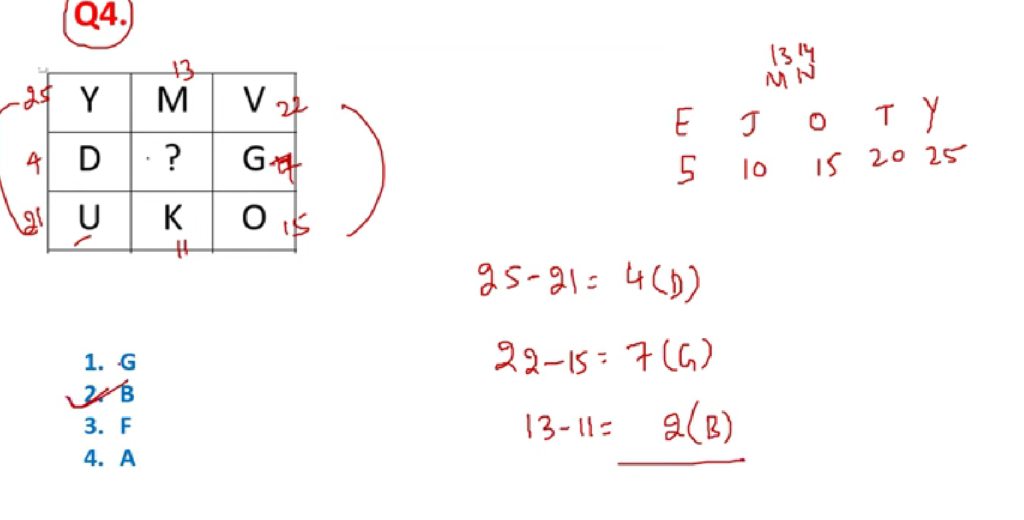 Q4.
13
25 Y M V 22
4 D ? G 7
21 U K O 15
11
1. G
2. B
3. F
4. A
13 14
M N
E J O T Y
5 10 15 20 25
25-21= 4(D)
22-15= 7(G)
13-11= 2(B)